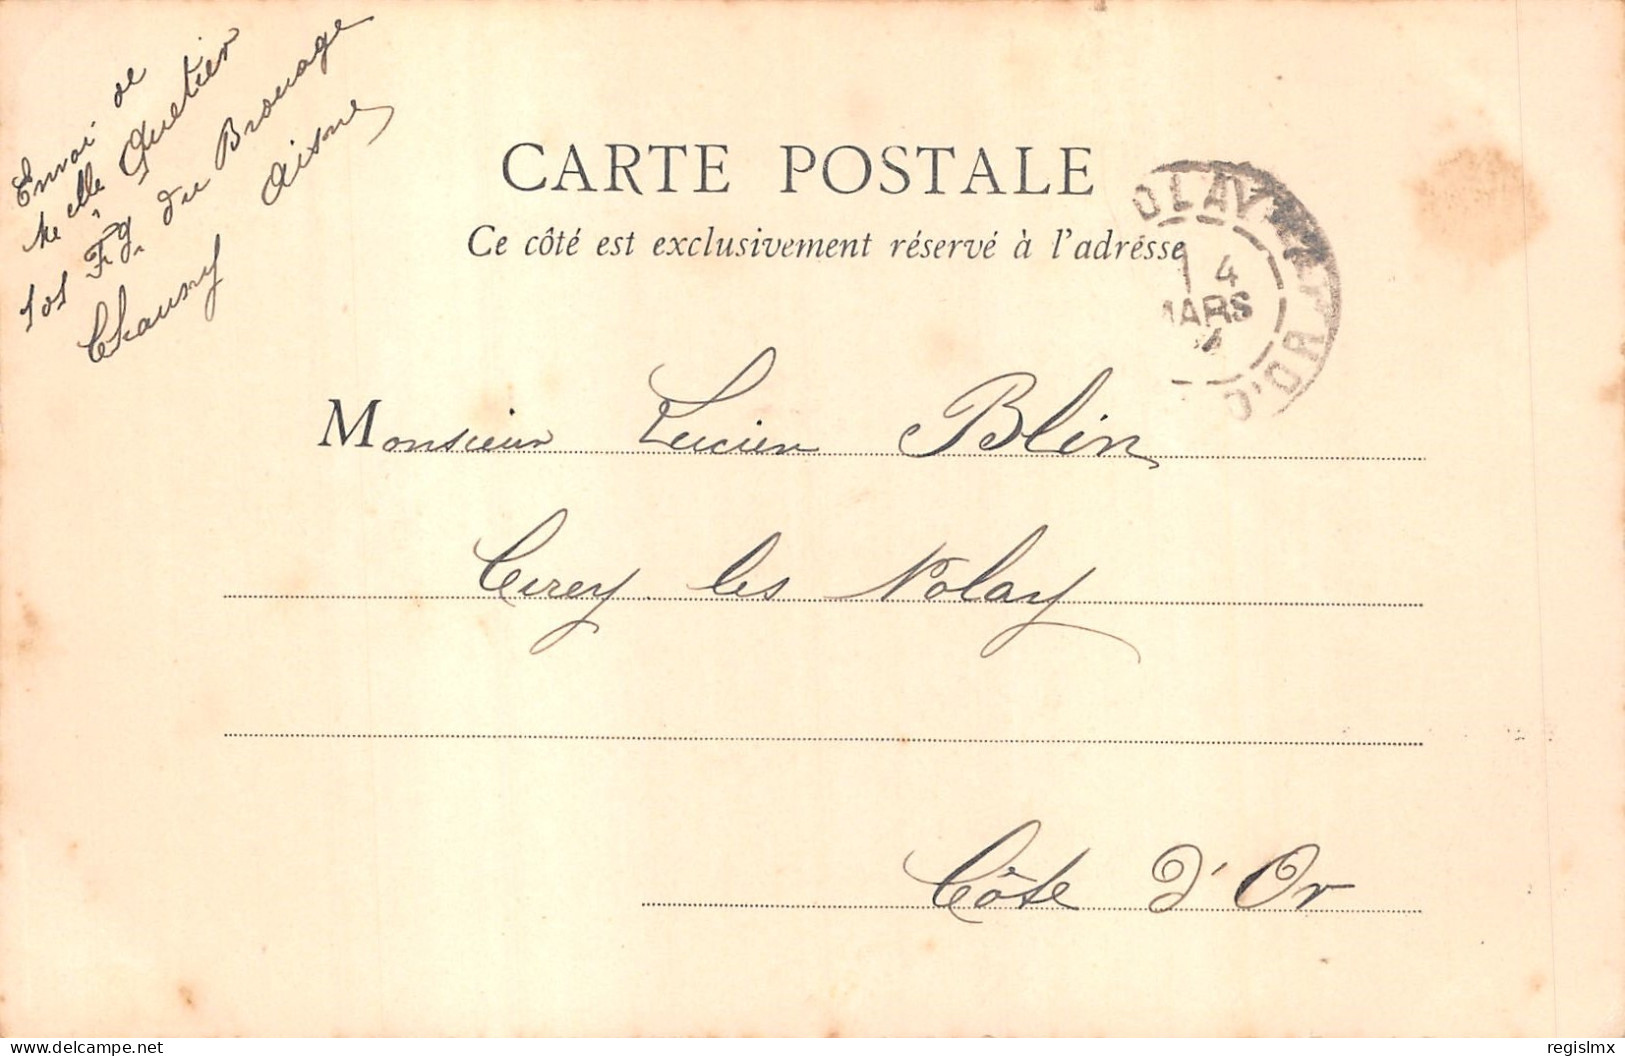 Envoi de
Melle Quetier
101 Fg. du Brouage
Chauny Aisne
CARTE POSTALE
Ce côté est exclusivement réservé à l'adresse
OLAY
4
MARS
D'OR
Monsieur Lucien Blin
Cirey les Nolay
Côte d'Or
delcampe.net
regislmx